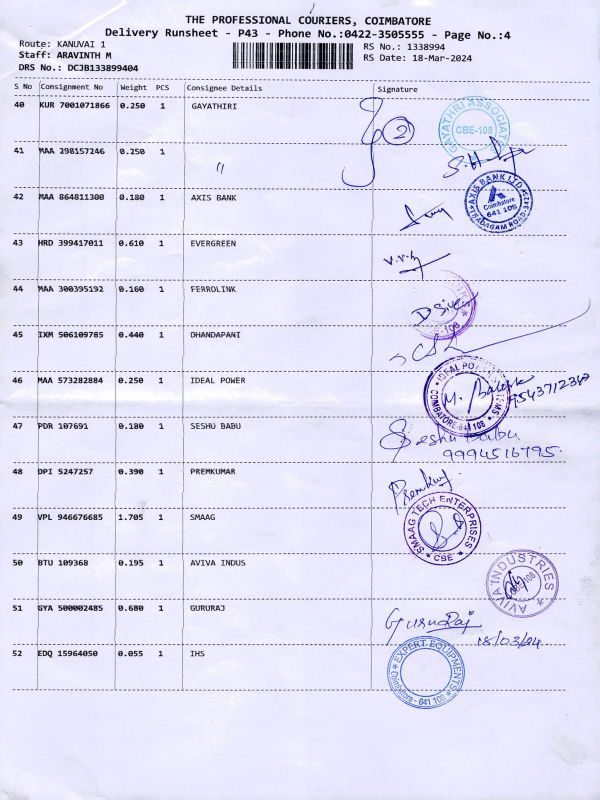 THE PROFESSIONAL COURIERS, COIMBATORE
Delivery Runsheet - P43 - Phone No.:0422-3505555 - Page No.:4
Route: KANUVAI 1 RS No.: 1338994
Staff: ARAVINTH M RS Date: 18-Mar-2024
DRS No.: DCJB133899404
S No Consignment No Weight PCS Consignee Details Signature
40 KUR 7001071866 0.250 1 GAYATHIRI 2 GAYATHRI ASSOCIAT CBE-108
41 MAA 298157246 0.250 1 "
42 MAA 864811300 0.180 1 AXIS BANK AXIS BANK LTD Coimbatore 641 108
43 HRD 399417011 0.610 1 EVERGREEN
44 MAA 300395192 0.160 1 FERROLINK
45 IXM 506109785 0.440 1 DHANDAPANI
46 MAA 573282884 0.250 1 IDEAL POWER IDEAL COIMBATORE-641 108
47 PDR 107691 0.180 1 SESHU BABU Seshu Babu
9994516795
48 DPI 5247257 0.390 1 PREMKUMAR
49 VPL 946676685 1.705 1 SMAAG SMAAG TECH ENTERPRISES CBE
50 BTU 109368 0.195 1 AVIVA INDUS AVIVA INDUSTRIES
51 GYA 500002485 0.680 1 GURURAJ GuruRaj
18/03/24
52 EDQ 15964050 0.055 1 IHS EXPERT EQUIPMENTS Coimbatore - 641 108